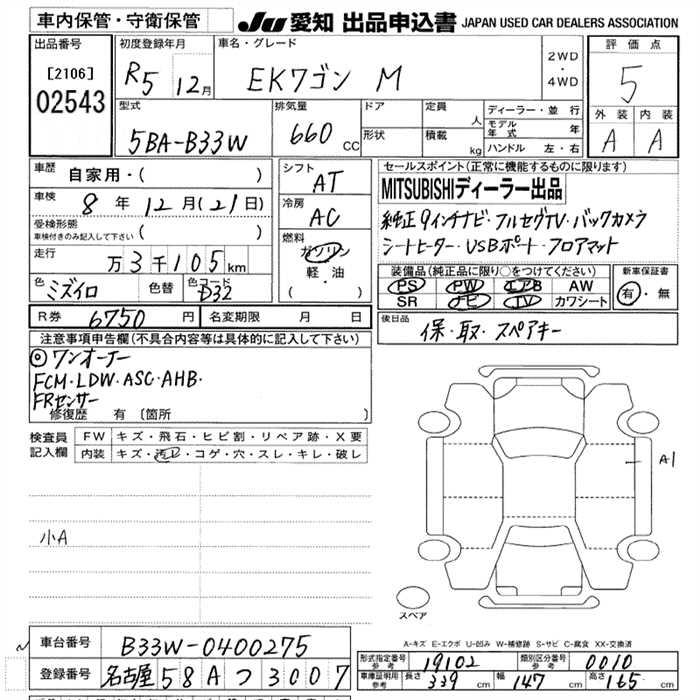 車内保管・守衛保管
JU 愛知 出品申込書 JAPAN USED CAR DEALERS ASSOCIATION
出品番号
[2106]
02543
初度登録年月
R5 12月
車名・グレード
EKワゴン M
2WD
・
4WD
評価点
5
外装 内装
A A
型式
5BA-B33W
排気量
660 CC
ドア
形状
定員 人
積載 kg
ディーラー・並行
モデル年式 年
ハンドル 左・右
車歴 自家用・( )
車検 8年12月(21日)
受検形態
車検付きのみ記入して下さい ( )
走行 万3千105km
色 ミズイロ 色替 色コード D32
シフト
AT
冷房
AC
燃料
ガソリン
軽・油
( )
セールスポイント(正常に機能するものに限ります)
MITSUBISHIディーラー出品
純正9インチナビ・フルセグTV・バックカメラ
シートヒーター・USBポート・フロアマット
装備品(純正品に限り○をつけてください)
PS PW エアB AW
SR ナビ TV カワシート
新車保証書
有・無
R券 6750円 名変期限 月 日
後日品
保・取・スペアキー
注意事項申告欄(不具合内容等は具体的に記入して下さい)
◎ワンオーナー
FCM・LDW・ASC・AHB・
FRセンサー
修復歴 有 〔箇所
検査員記入欄
FW キズ・飛石・ヒビ割・リペア跡・X要
内装 キズ・汚レ・コゲ・穴・スレ・キレ・破レ
小A
A1
スペア
A-キズ E-エクボ U-凹み W-補修跡 S-サビ C-腐食 XX-交換済
車台番号 B33W-0400275
登録番号 名古屋 58A つ 3007
形式指定番号 参考 19102 類別区分番号 参考 0010
車庫証明用 参考 長さ 339cm 幅 147cm 高さ 165cm